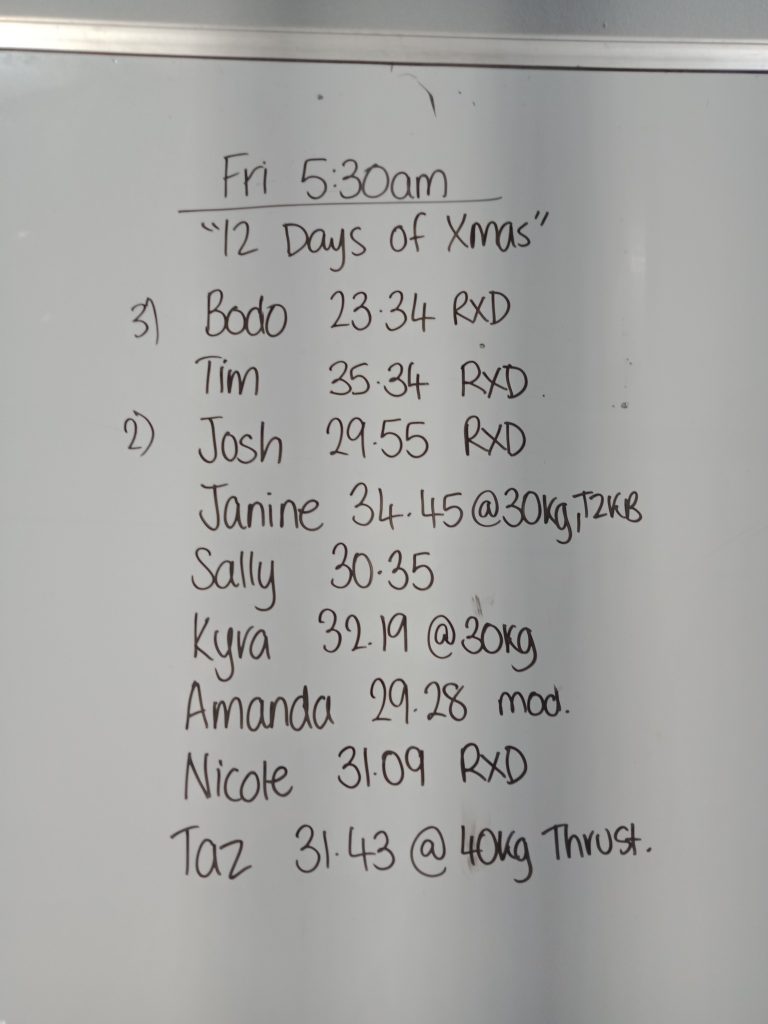 Fri 5:30am
"12 Days of Xmas"
3) Bodo 23.34 RXD
Tim 35.34 RXD
2) Josh 29.55 RXD
Janine 34.45 @30kg, T2KB
Sally 30.35
Kyra 32.19 @30kg
Amanda 29.28 mod.
Nicole 31.09 RXD
Taz 31.43 @ 40kg Thrust.